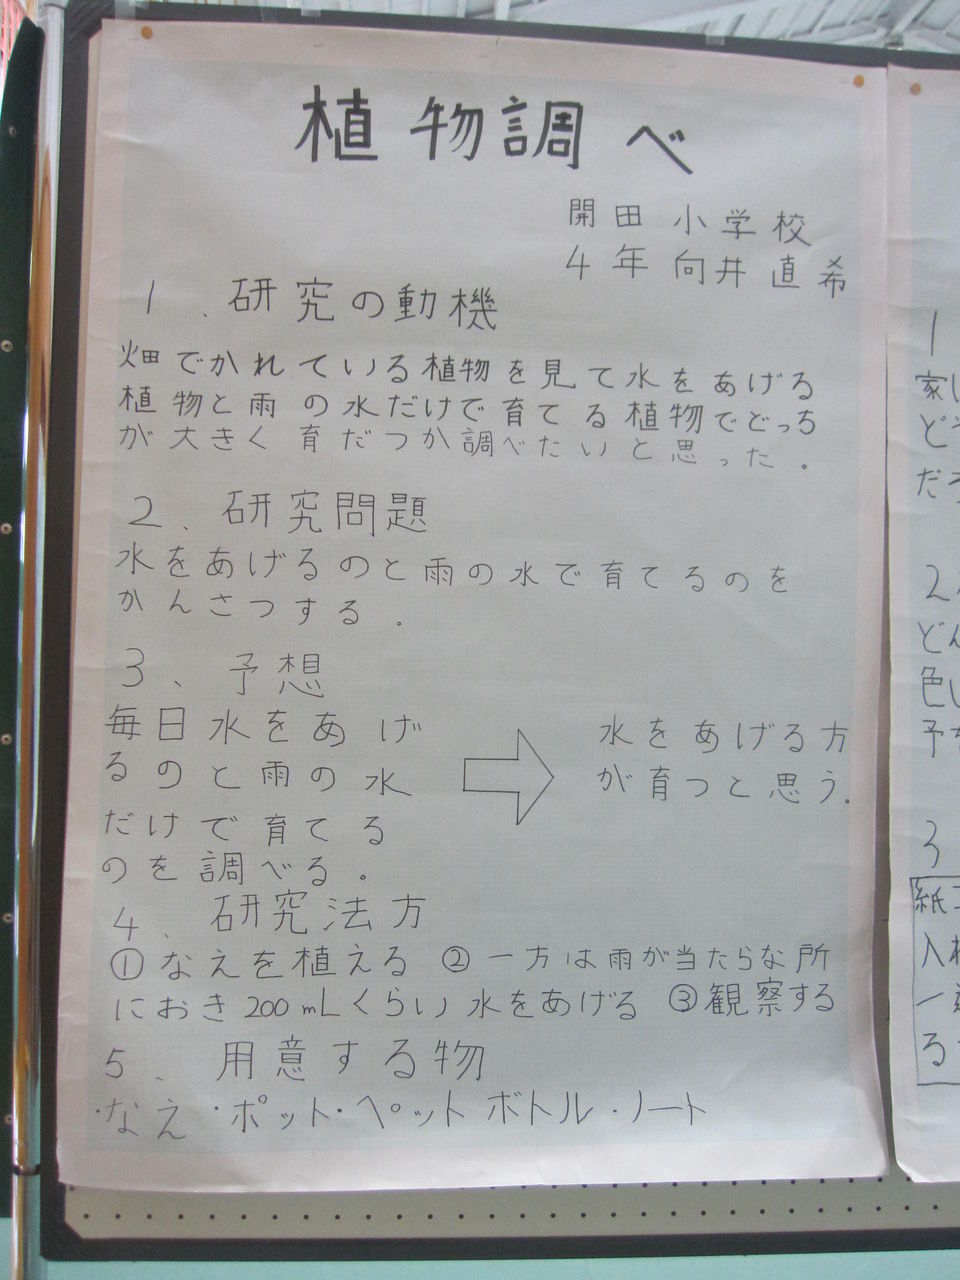 植物調べ
開田小学校
4年 向井 直希
1、研究の動機
畑でかれている植物を見て水をあげる
植物と雨の水だけで育てる植物でどっち
が大きく育だつか調べたいと思った。
2、研究問題
水をあげるのと雨の水で育てるのを
かんさつする。
3、予想
毎日水をあげ
るのと雨の水
だけで育てる
のを調べる。
水をあげる方
が育つと思う。
4、研究法方
①なえを植える ②一方は雨が当たらな所
におき200mLくらい水をあげる ③観察する
5、用意する物
・なえ・ポット・ペットボトル・ノート
1
家し
どう
だろ
2、
どん
色し
予を
3
紙コ
入れ
る